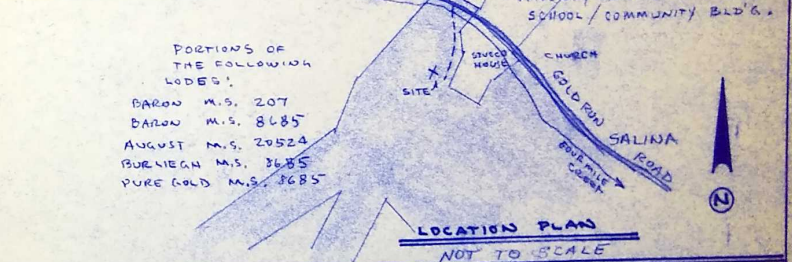 SCHOOL / COMMUNITY BLD'G.
PORTIONS OF
THE FOLLOWING
LODES:
BARON M.S. 207
BARON M.S. 8685
AUGUST M.S. 20524
BURLIEGH M.S. 8685
PURE GOLD M.S. 8685
STUCCO
HOUSE
CHURCH
SITE
GOLD RUN
SALINA
ROAD
FOUR MILE
CREEK
N
LOCATION PLAN
NOT TO SCALE